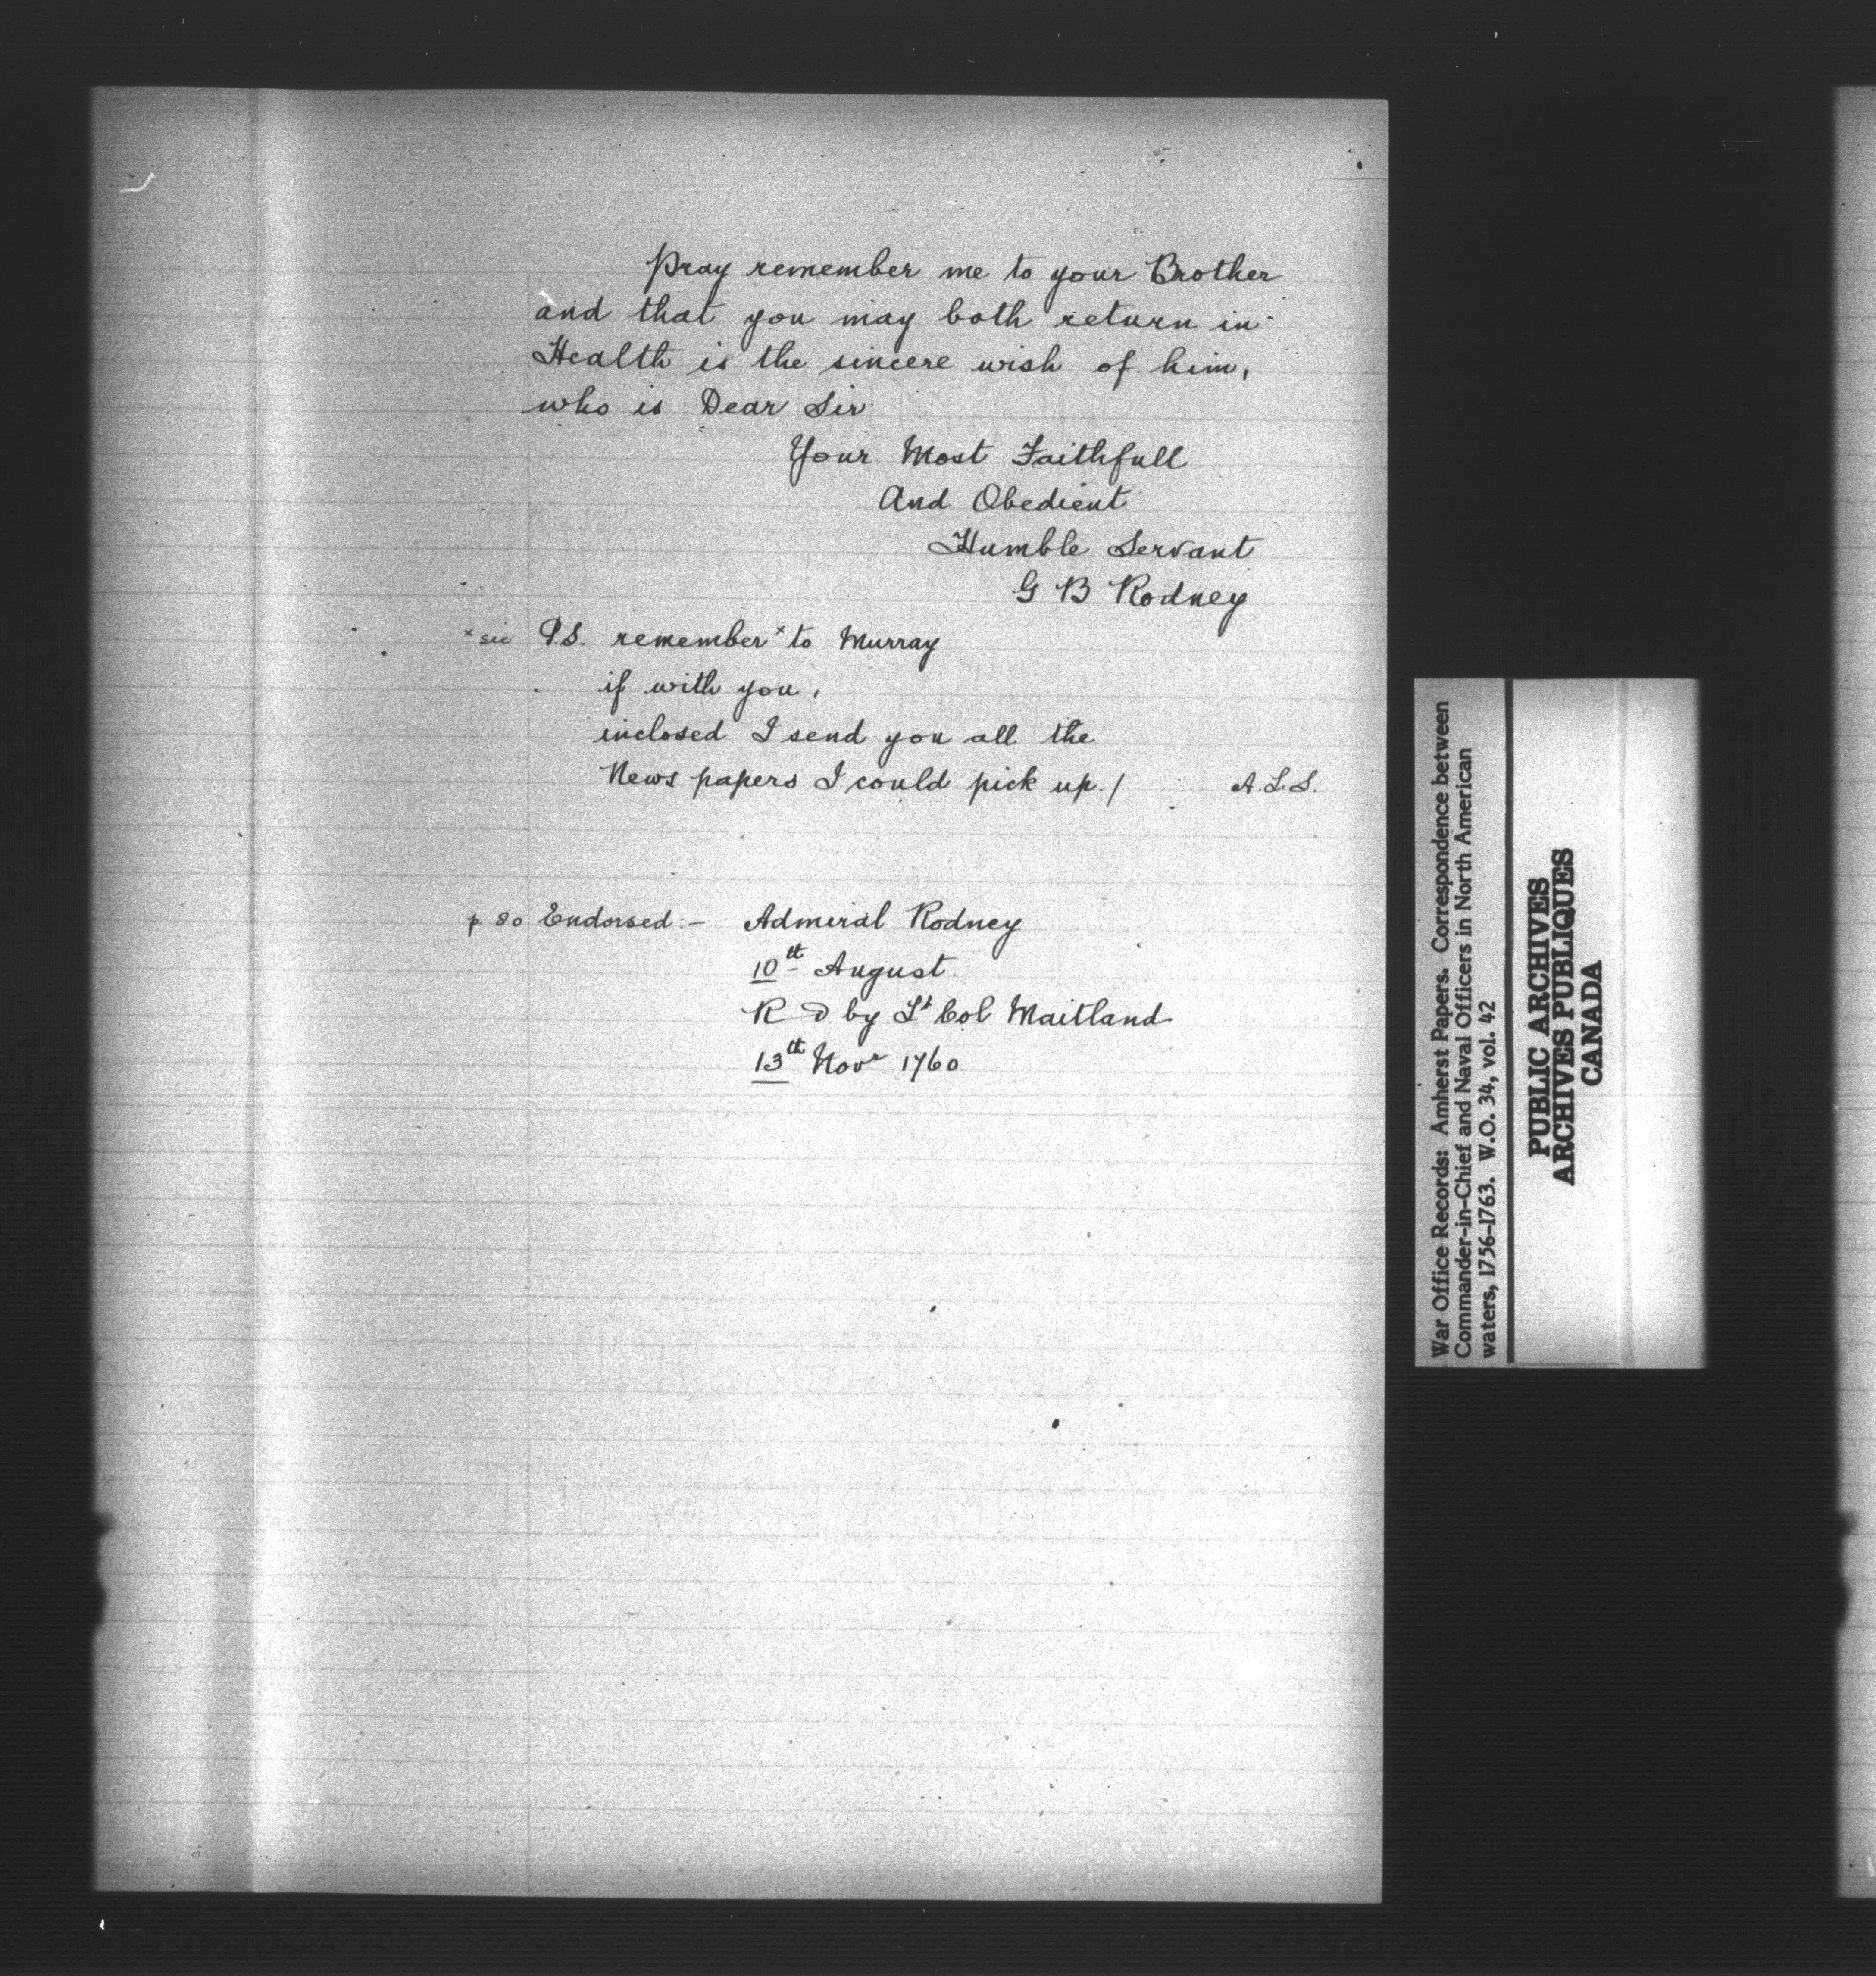 Pray remember me to your Brother
and that you may both return in
Health is the sincere wish of him,
who is Dear Sir
Your Most Faithfull
And Obedient
Humble Servant
G B Rodney
x sic P.S. remember x to Murray
if with you,
inclosed I send you all the
News papers I could pick up./ A.L.S.
p 80 Endorsed:- Admiral Rodney
10th August
R D by Lt Col Maitland
13th Novr 1760
War Office Records: Amherst Papers. Correspondence between
Commander-in-Chief and Naval Officers in North American
waters, 1756-1763. W.O. 34, vol. 42
PUBLIC ARCHIVES
ARCHIVES PUBLIQUES
CANADA